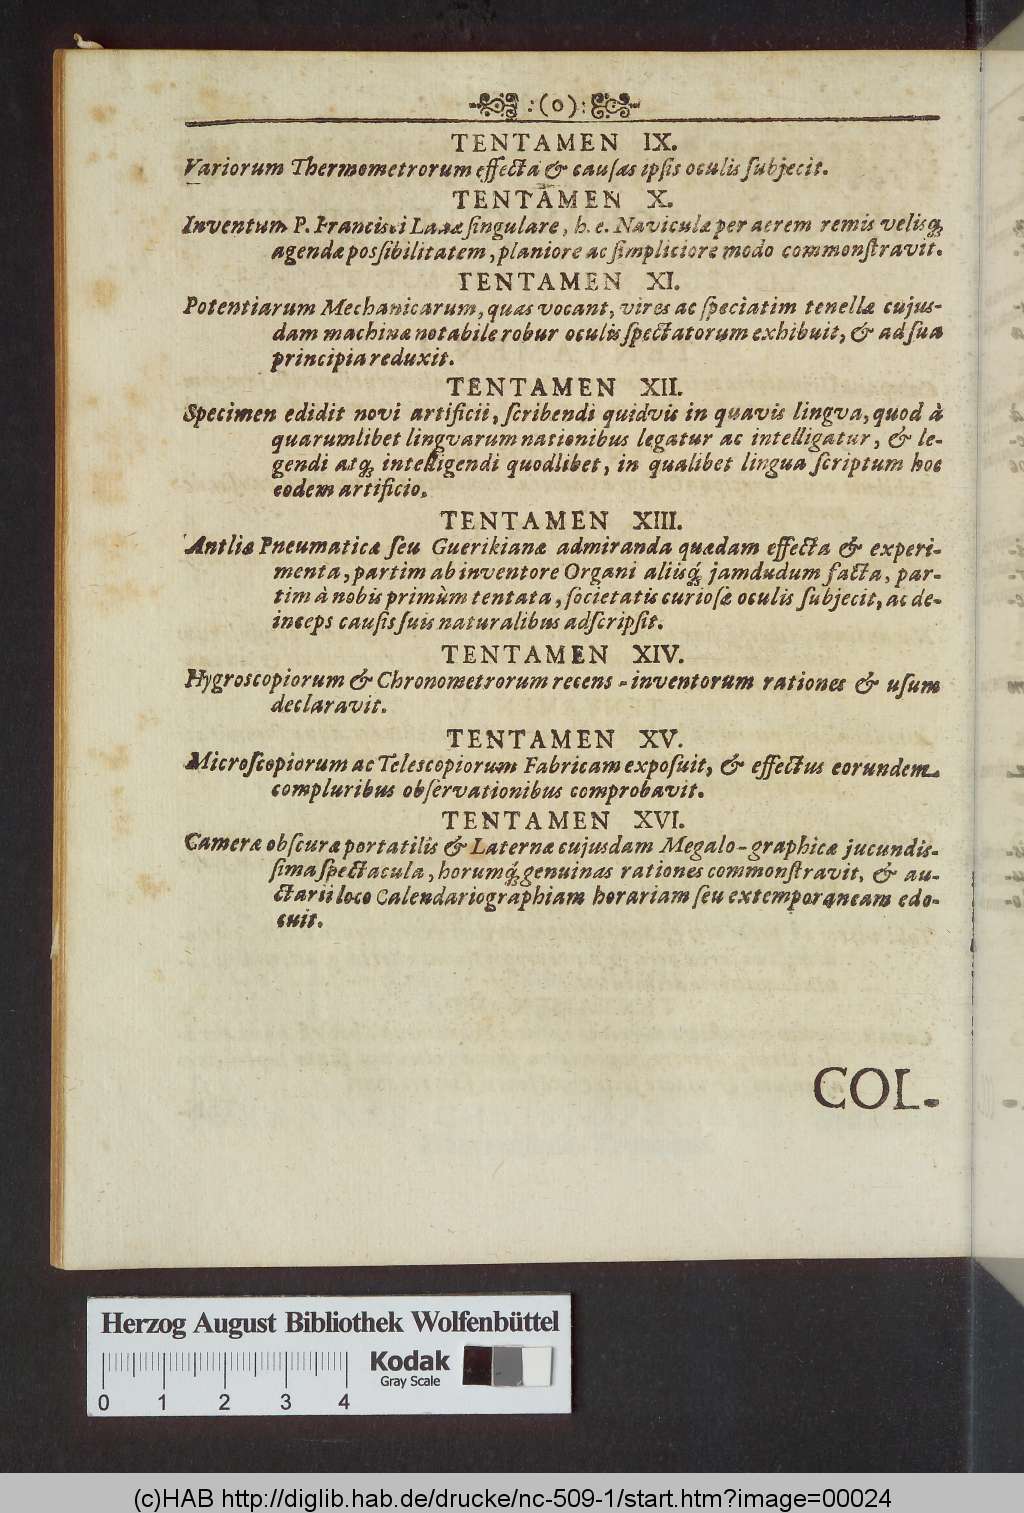 :(o):
TENTAMEN IX.
Variorum Thermometrorum effecta & causas ipsis oculis ſubjecit.
TENTAMEN X.
Inventum P. Francisci Lanæ ſingulare, h. e. Naviculæ per aerem remis velisq́;
agendæ posſibilitatem, planiore ac ſimpliciore modo commonſtravit.
TENTAMEN XI.
Potentiarum Mechanicarum, quas vocant, vires ac ſpeciatim tenellæ cujus-
dam machinæ notabile robur oculis ſpectatorum exhibuit, & ad ſua
principia reduxit.
TENTAMEN XII.
Specimen edidit novi artificii, ſcribendi quidvis in quavis lingva, quod à
quarumlibet lingvarum nationibus legatur ac intelligatur, & le-
gendi atq; intelligendi quodlibet, in qualibet lingua ſcriptum hoc
eodem artificio.
TENTAMEN XIII.
Antliæ Pneumaticæ ſeu Guerikianæ admiranda quædam effecta & experi-
menta, partim ab inventore Organi aliisq́; jamdudum facta, par-
tim à nobis primùm tentata, ſocietatis curioſæ oculis ſubjecit, ac de-
inceps cauſis ſuis naturalibus adſcripſit.
TENTAMEN XIV.
Hygroscopiorum & Chronometrorum recens-inventorum rationes & uſum
declaravit.
TENTAMEN XV.
Microſcopiorum ac Telescopiorum Fabricam expoſuit, & effectus eorundem
compluribus obſervationibus comprobavit.
TENTAMEN XVI.
Cameræ obſcuræ portatilis & Laternæ cujusdam Megalo-graphicæ jucundis-
ſima ſpectacula, horumq́; genuinas rationes commonſtravit, & au-
ctarii loco Calendariographiam horariam ſeu extemporaneam edo-
cuit.
COL-
Herzog August Bibliothek Wolfenbüttel
Kodak
Gray Scale
0 1 2 3 4
(c)HAB http://diglib.hab.de/drucke/nc-509-1/start.htm?image=00024